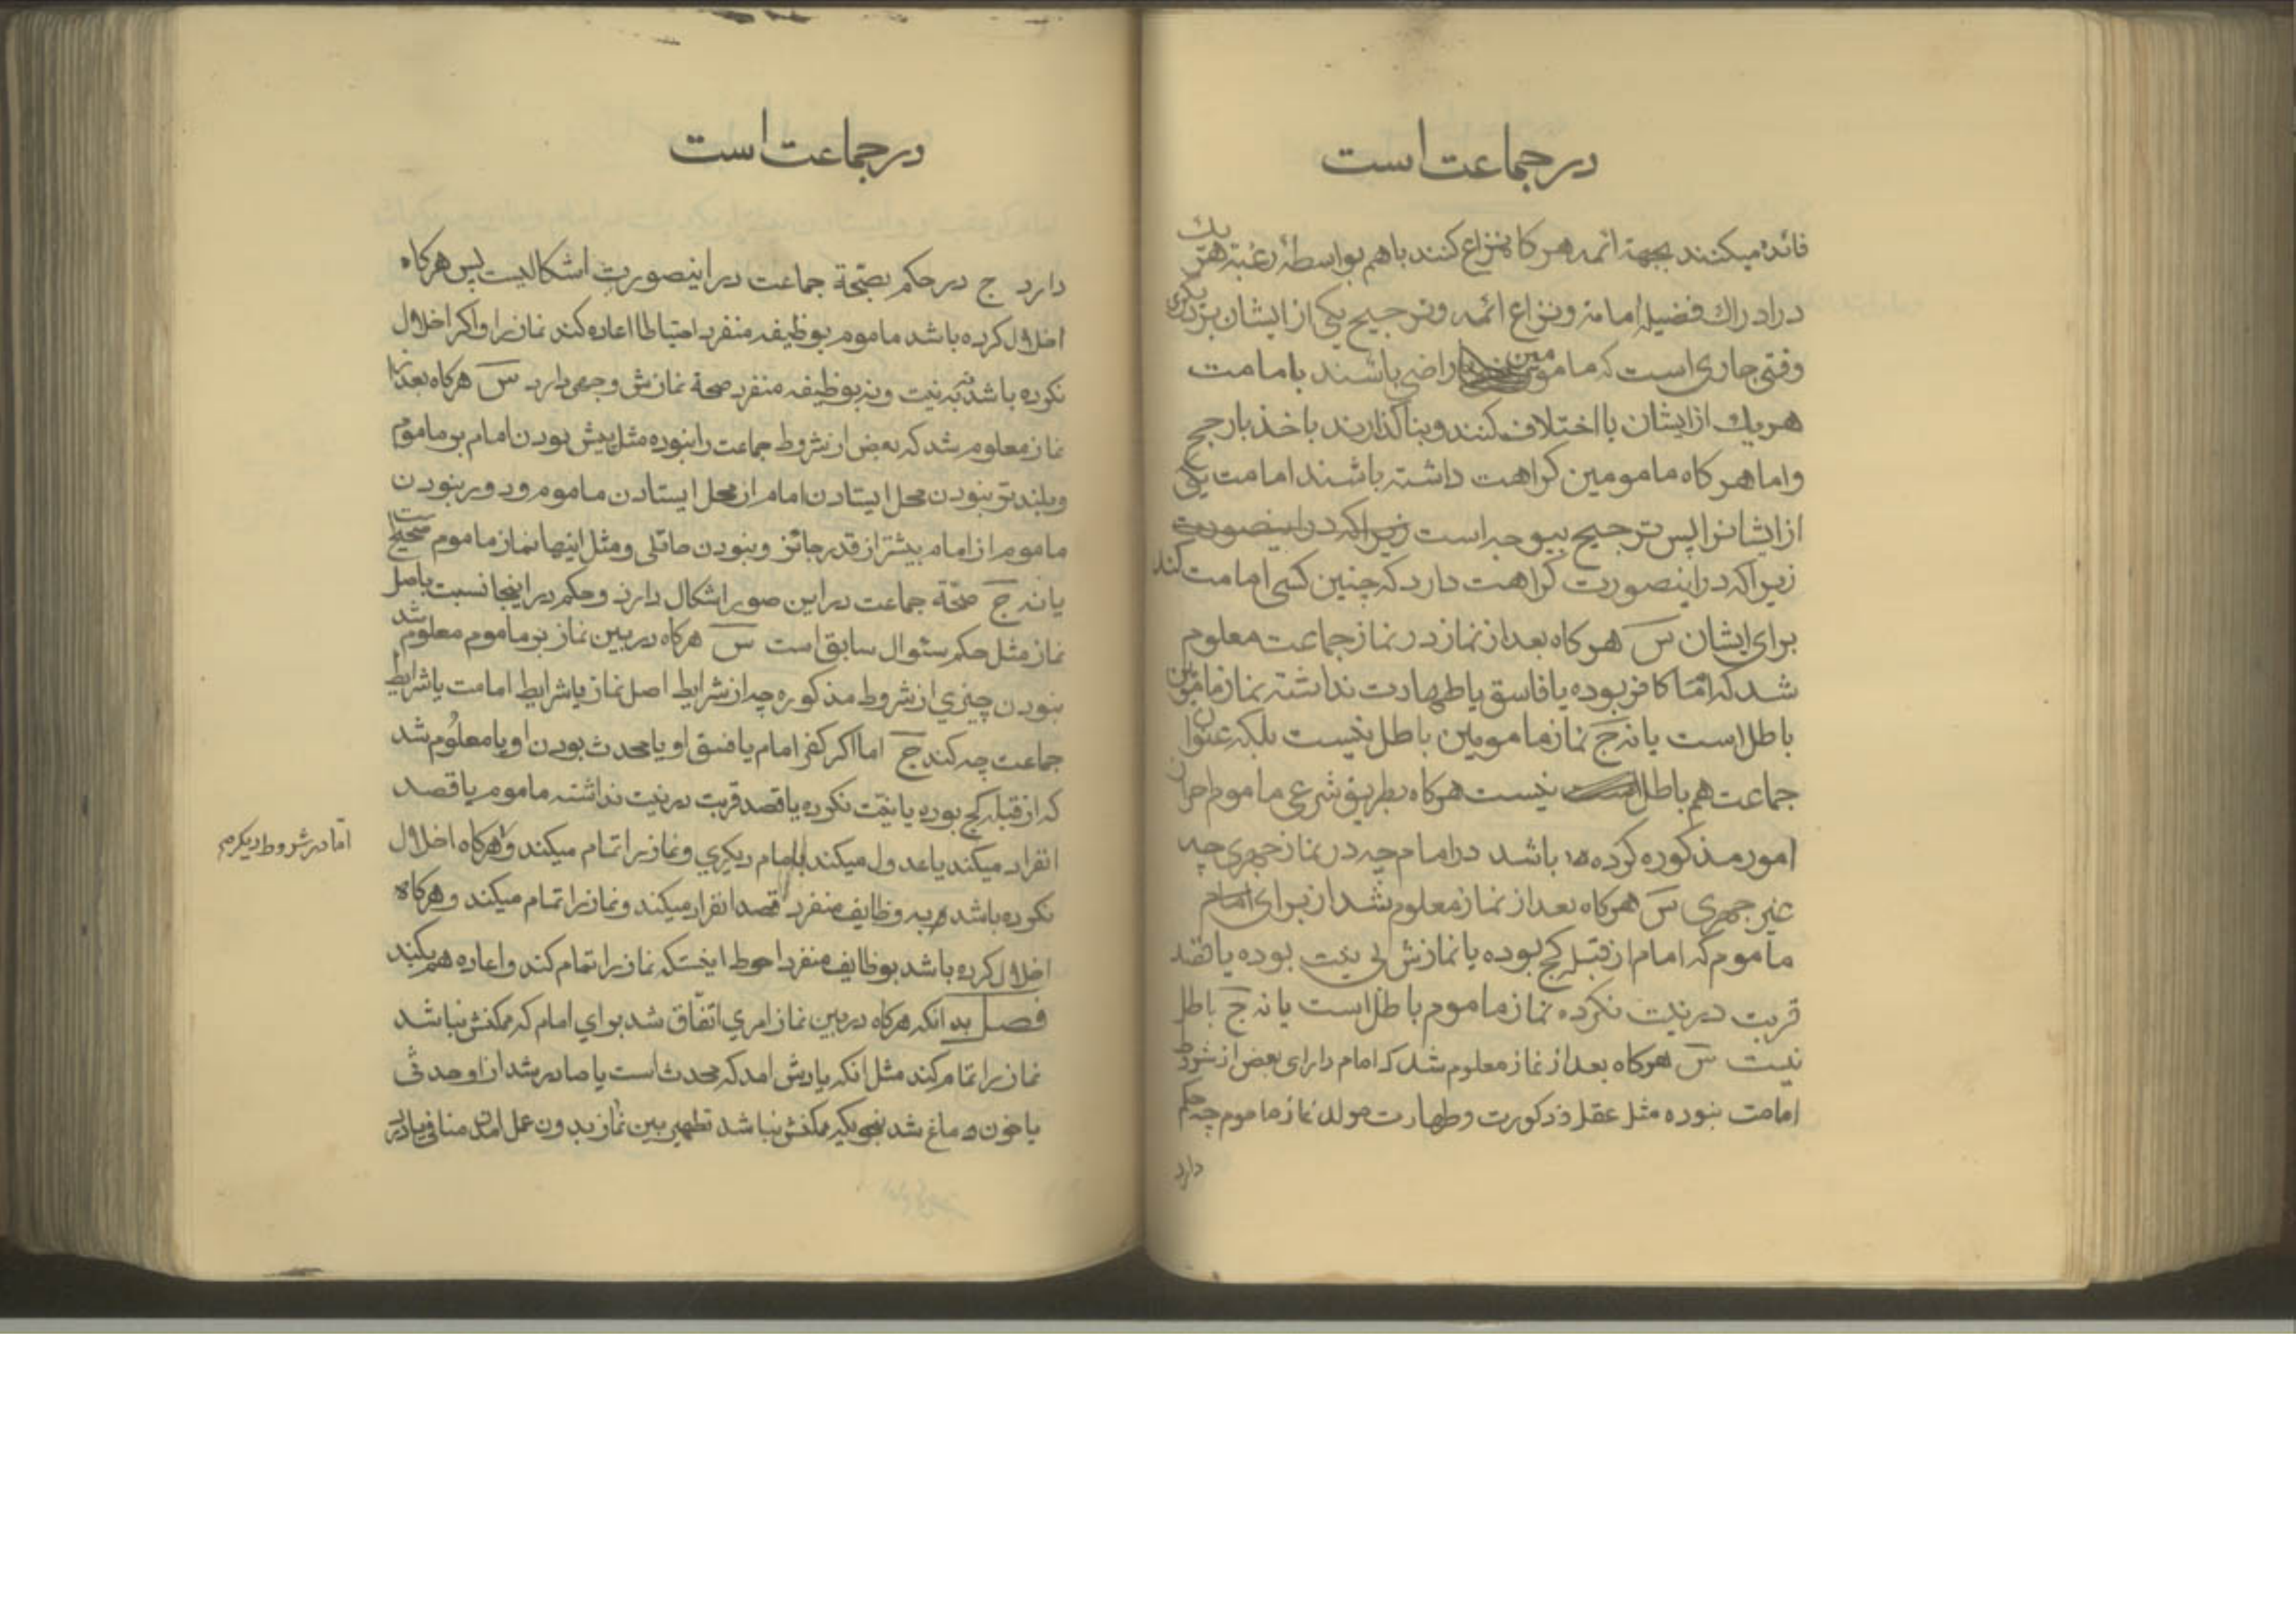 در جماعت است
فائده میکنند بجهة ائمه هر کاه نزاع کنند باهم بواسطهٔ رغبة هر یك
در ادراك فضیلهٔ امامة و نزاع ائمه و ترجیح یکی از ایشان بر دیکری
وقتی جاری است که مامومین راضی باشند بامامت
هر یك از ایشان با اختلاف کنند و بنا کذارند باخذ بارجح
و اما هر کاه مامومین کراهت داشته باشند امامت یکی
از ایشانرا پس ترجیح بیوجه است زیرا که در اینصورت
زیرا که در اینصورت کراهت دارد که چنین کسی امامت کند
برای ایشان س هر کاه بعد از نماز در نماز جماعت معلوم
شد که امام کافر بوده یا فاسق یا طهارت نداشته نماز مامومین
باطل است یا نه ج نماز مامومین باطل نیست بلکه عنوان
جماعت هم باطل نیست هر کاه بطریق شرعی ماموم احراز
امور مذکوره کرده باشد در امام چه در نماز جهری چه
غیر جهری س هر کاه بعد از نماز معلوم شد از برای امام
ماموم که امام از قبله کج بوده یا نمازش بی نیت بوده یا قصد
قربت در نیت نکرده نماز ماموم باطل است یا نه ج باطل
نیست س هر کاه بعد از نماز معلوم شد که امام دارای بعض از شروط
امامت نبوده مثل عقل و ذکورت و طهارت مولد نماز ماموم چه حکم
دارد
در جماعت است
دارد ج در حکم بصحة جماعت در اینصورت اشکالیست پس هر کاه
اخلال کرده باشد ماموم بوظیفه منفرد احتیاطا اعاده کند نماز را و اکر اخلال
نکرده باشد نه بنیت و نه بوظیفه منفرد صحة نمازش وجهی دارد س هر کاه بعد از
نماز معلوم شد که بعض از شروط جماعت را نبوده مثل پیش بودن امام بر ماموم
و بلندتر نبودن محل ایستادن امام از محل ایستادن ماموم و دور نبودن
ماموم از امام بیشتر از قدر جائز و نبودن حائلی و مثل اینها نماز ماموم صحیح است
یا نه ج صحة جماعت در این صور اشکال دارد و حکم در اینجا نسبت باصل
نماز مثل حکم سئوال سابق است س هر کاه در بین نماز بر ماموم معلوم شد
نبودن چیزی از شروط مذکوره چه از شرایط اصل نماز یا شرایط امامت یا شرایط
جماعت چه کند ج اما اکر کفر امام یا فسق او یا محدث بودن او یا معلوم شد
که از قبله کج بوده یا نیت نکرده یا قصد قربت در نیت نداشته ماموم یا قصد
انفراد میکند یا عدول میکند بامام دیکری و نماز را تمام میکند و هر کاه اخلال
اما در شروط دیکر هم
نکرده باشد به وظایف منفرد قصد انفراد میکند و نماز را تمام میکند و هر کاه
اخلال کرده باشد بوظایف منفرد احوط اینستکه نماز را تمام کند و اعاده هم بکند
فصل بدانکه هر کاه در بین نماز امری اتفاق شد برای امام که ممکنش نباشد
نماز را تمام کند مثل انکه یادش امد که محدث است یا صادر شد از او حدثی
یا خون دماغ شد بنحویکه ممکنش نباشد تطهیر بین نماز بدون عمل منافی یا